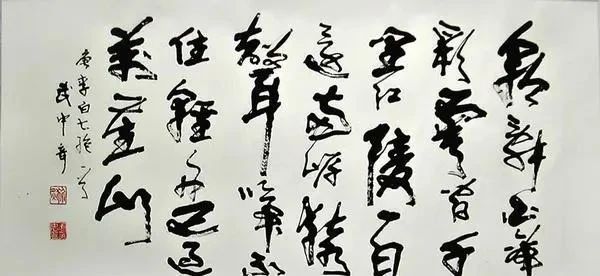 朝辭白帝
彩雲間千
里江陵一日
還兩岸猿
聲啼不
住輕舟已過
萬重山
唐李白七絕一首
武中奇